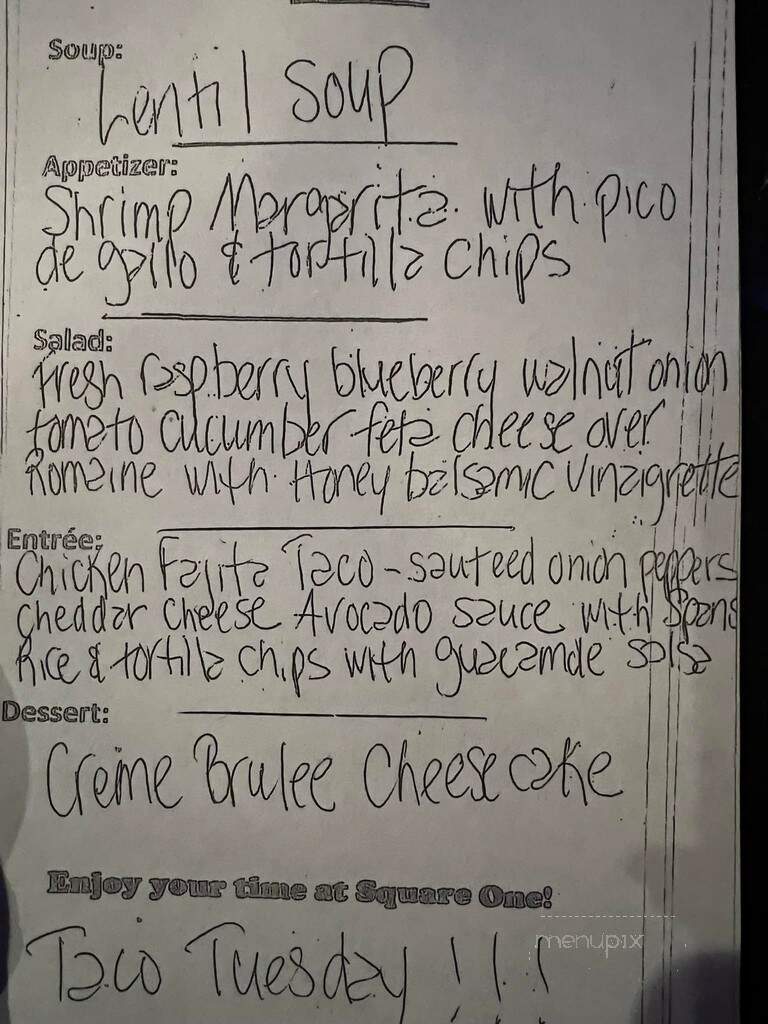 Soup:
Lentil Soup
Appetizer:
Shrimp Margarita with pico
de gallo & tortilla chips
Salad:
Fresh raspberry blueberry walnut onion
tomato cucumber feta cheese over
Romaine with Honey balsamic Vinaigrette
Entrée:
Chicken Fajita Taco - sauteed onion peppers
cheddar cheese Avocado sauce with Spans
Rice & tortilla chips with guacamole salsa
Dessert:
Creme Brulee Cheesecake
Enjoy your time at Square One!
Taco Tuesday !!!
menupix